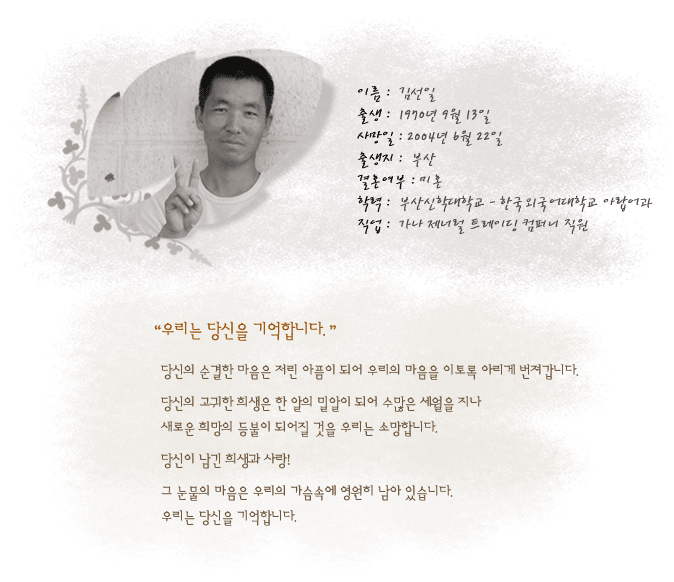 이름 : 김선일
출생 : 1970년 9월 13일
사망일 : 2004년 6월 22일
출생지 : 부산
결혼여부 : 미혼
학력 : 부산신학대학교 - 한국외국어대학교 아랍어과
직업 : 가나 제너럴 트레이딩 컴퍼니 직원
“우리는 당신을 기억합니다.”
당신의 순결한 마음은 저린 아픔이 되어 우리의 마음을 이토록 아리게 번져갑니다.
당신의 고귀한 희생은 한 알의 밀알이 되어 수많은 세월을 지나
새로운 희망의 등불이 되어질 것을 우리는 소망합니다.
당신이 남긴 희생과 사랑!
그 눈물의 마음은 우리의 가슴속에 영원히 남아 있습니다.
우리는 당신을 기억합니다.